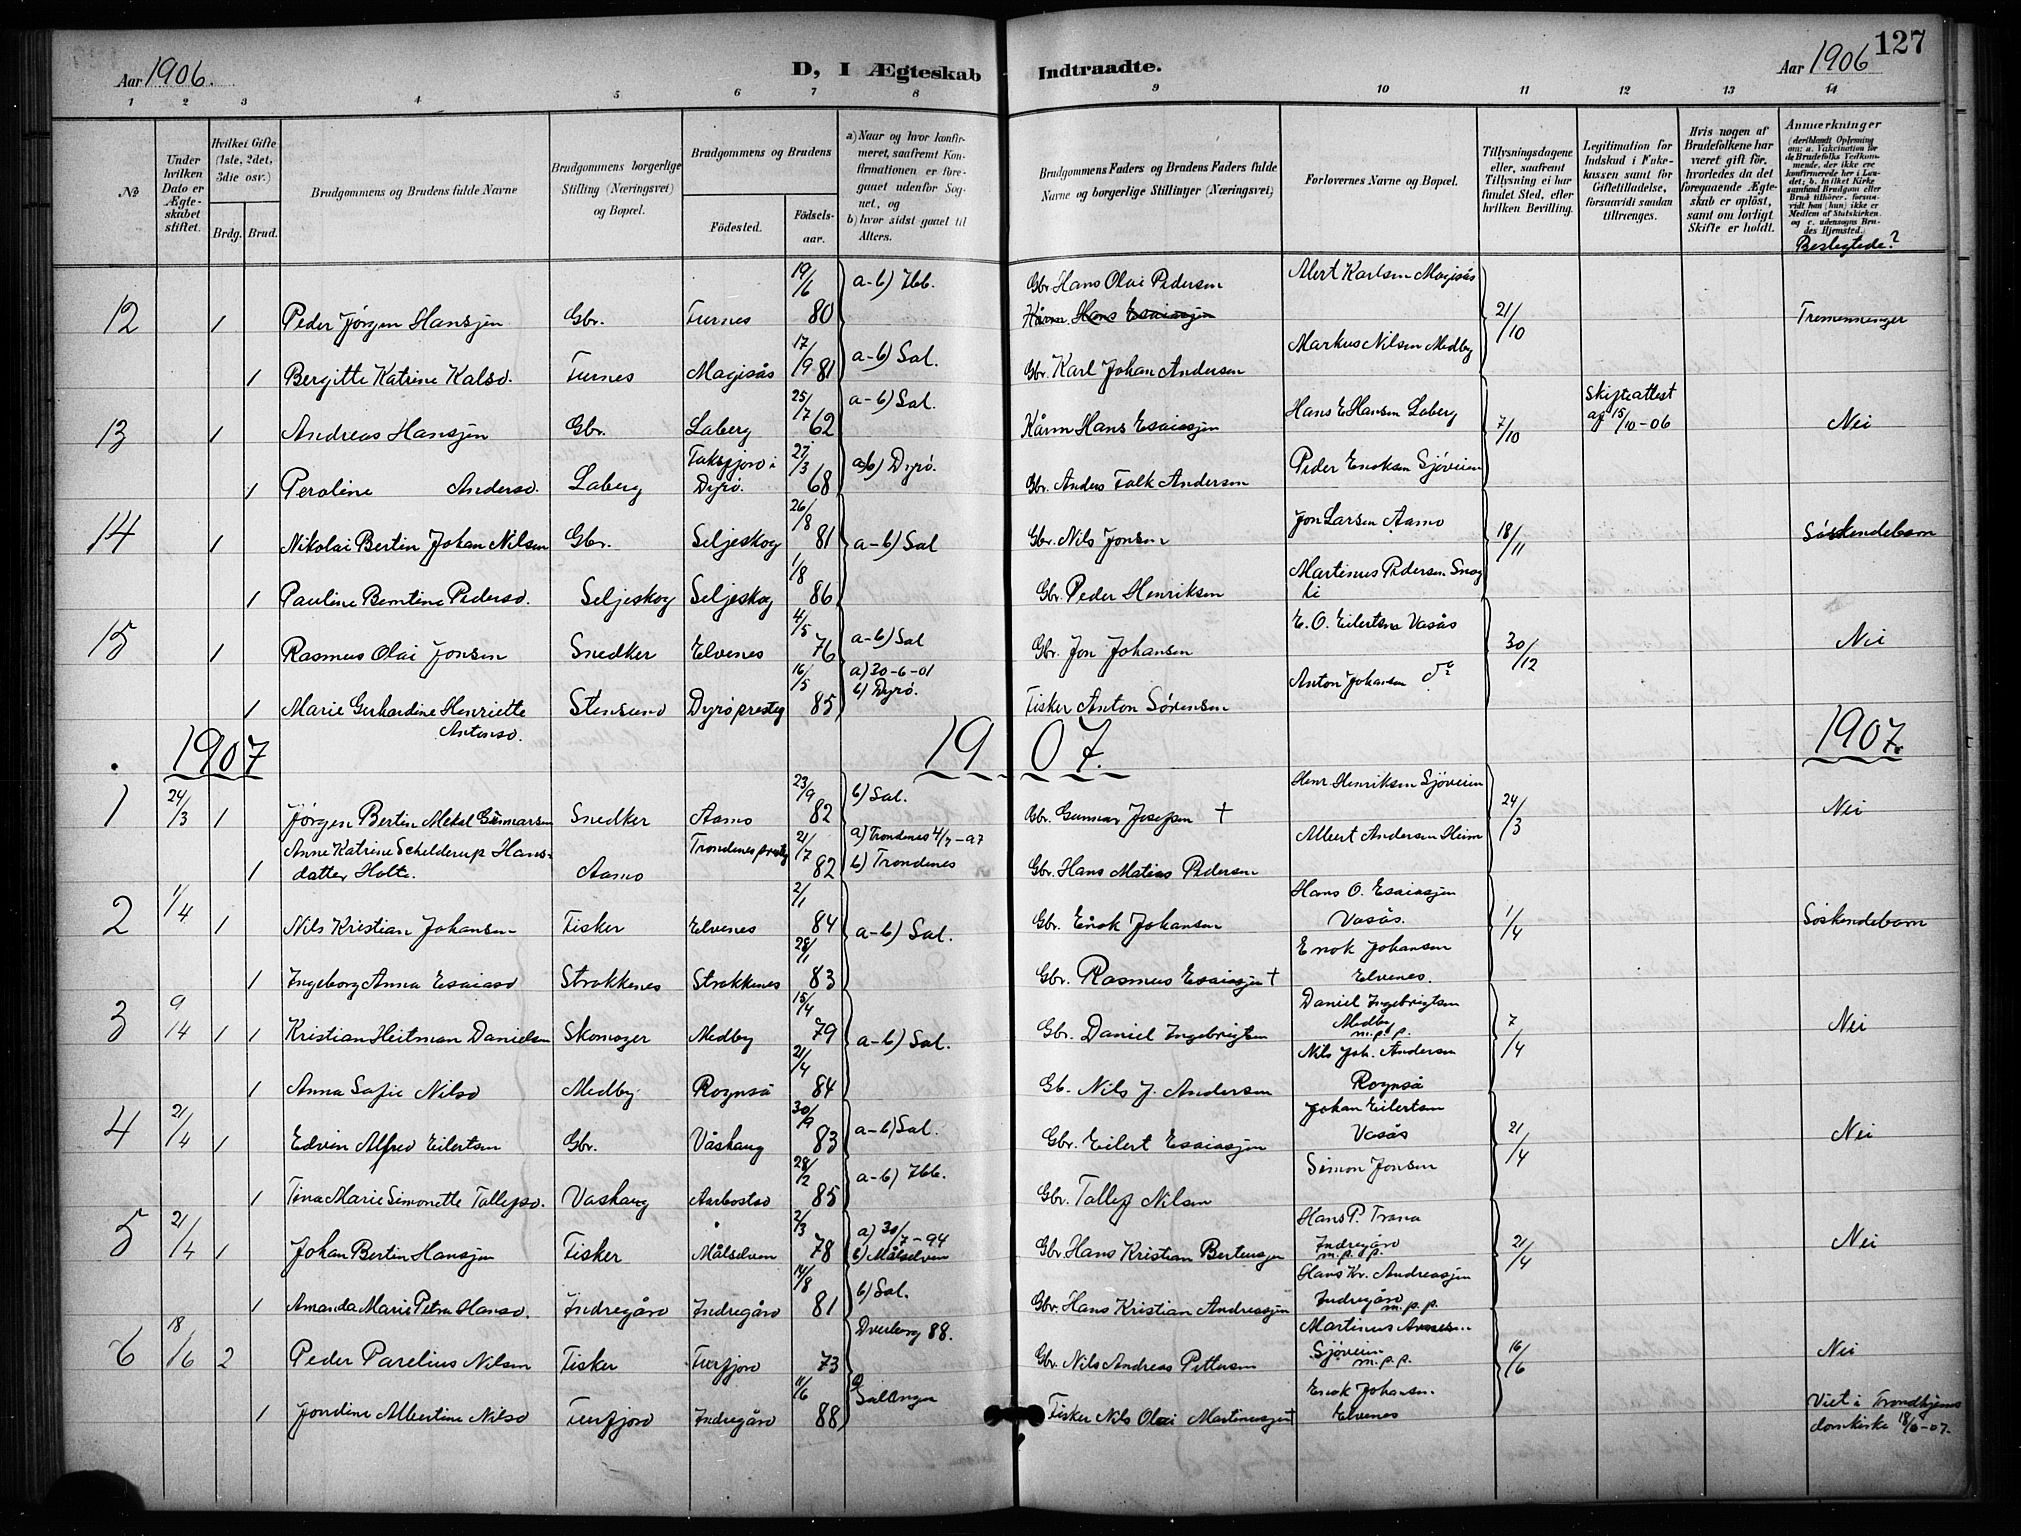 Aar 1906.
D, I Ægteskab
Indtraadte.
Aar 1906
127
1 2 3 4 5 6 7 8 9 10 11 12 13 14
No
Under hvilken Dato er Ægteskabet stiftet.
Hvilket Gifte (1ste, 2det, 3die osv.)
Brdg. Brud.
Brudgommens og Brudens fulde Navne
Brudgommens borgerlige Stilling (Næringsvei) og Bopæl.
Brudgommens og Brudens
Födested.
Födselsaar.
a) Naar og hvor konfirmeret, saafremt Konfirmationen er foregaaet udenfor Sognet, og
b) hvor sidst gaaet til Alters.
Brudgommens Faders og Brudens Faders fulde Navne og borgerlige Stillinger (Næringsvei)
Forlovernes Navne og Bopæl.
Tillysningsdagene eller, saafremt Tillysning ei har fundet Sted, efter hvilken Bevilling.
Legitimation for Indskud i Enkekassen samt for Giftetilladelse, forsaavidt saadan tiltrænges.
Hvis nogen af Brudefolkene har været gift för, hvorledes da det foregaaende Ægteskab er oplöst, samt om lovligt Skifte er holdt.
Anmærkninger
(deriblandt Oplysning om: a. Vakcination for de Brudefolks Vedkommende, der ikke ere konfirmerede her i Landet; b. hvilket Kirkesamfund Brudgom eller Brud tilhörer, forsaavidt han (hun) ikke er Medlem af Statskirken, og c. udensogns Brudes Hjemsted.)
Beslegtede?
12 1 Peder Jørgen Hansjen Gbr. Furnes 19/6 80 a-b) Ibb. Gbr. Hans Olai Pedersen Alert Karlsen Magisås 21/10 Tremenninger
Kårm. Hans Esaiasjen
1 Bergitte Katrine Kalsd. Furnes Magisås 17/9 81 a-b) Sal. Gbr. Karl Johan Andersen Markus Nilsen Medby
13 1 Andreas Hansjen Gbr. Laberg 25/7 62 a-b) Sal. Kårm Hans Esaiasjen Hans E Hansen Laberg 7/10 Skifteattest af 15/10-06 Nei
1 Peroline Andersd. Laberg i Dyrø. 27/3 68 a-b) Dyrø. Gbr. Anders Falk Andersen Peder Enoksen Sjöveien
14 1 Nikolai Bertin Johan Nilsen Gbr. Seljeskog 26/8 81 a-b) Sal Gbr. Nils Jonsen Jon Larsen Aamo 18/11 Søskendebarn
1 Pauline Berntine Pedersd. Seljeskog Seljeskog 1/8 86 Gbr. Peder Henriksen Martinus Pedersen Snog
li
15 1 Rasmus Olai Jonsen Snedker Elvenes 4/5 76 a-b) Sal Gbr. Jon Johansen E. O. Eilertsen Vasås 30/12 Nei
1 Marie Gerhardine Henriette Antonsd. Stensund Dyrø prestegj 16/5 85 a) 30-6-01 b) Dyrø. Fisker Anton Sørensen Anton Johansen do
1907 1907. 1907.
1 24/3 1 Jørgen Bertin Mekal Gunnarsen Snedker Aamo 23/9 82 b) Sal. Gbr. Gunnar Josefsen † Henr Henriksen Sjöveien 24/3 Nei
1 Anne Katrine Schelderup Hansdatter Holte. Aamo Trondenes prestegj 21/7 82 a) Trondenes 4/7-97 b) Trondenes Gbr. Hans Matias Pedersen Albert Andersen Heim
2 1/4 1 Nils Kristian Johansen Fisker Elvenes 2/1 84 a-b) Sal. Gbr. Enok Johansen Hans O. Esaiasjen Vasås. 1/4 Søskendebarn
1 Ingeborg Anna Esaiasd Strokkenes Strokkenes 28/1 83 Gbr. Rasmus Esaiasjen † Enok Johansen Elvenes.
3 9/14 1 1 Kristian Heitman Danielsen Skomager Medby 15/4 79 a-b) Sal. Gbr. Daniel Ingebrigtsen Daniel Ingebrigtsen Medby m.p.p. 7/4 Nei
1 Anna Sofie Nilsd Medby Rognså 21/4 84 Gb. Nils J. Andersen Nils Joh. Andersen Rognså
4 21/4 1 Edvin Alfred Eilertsen Gbr. Våshaug 30/9 83 a-b) Sal. Gbr. Eilert Esaiasjen Johan Eilertsen Vasås 21/4 Nei
1 Tina Marie Simonette Tollefsd. Vashaug Aarbostad 28/2 85 a-b) Ibb. Gbr. Tollef Nilsen Simon Jonsen
5 21/4 1 Johan Bertin Hansjen Fisker Målselven 2/3 78 a) 30/7-94 b) Målselven Gbr. Hans Kristian Bertensjen Hans P. Trana Indregård m.p.p. 21/4 Nei
1 Amanda Marie Petra Hansd. Indregård Indregård 14/8 81 b) Sal. Gbr. Hans Kristian Andreassjen Hans Kr. Andreassjen Indregård m.p.p.
6 18/6 2 Peder Parelius Nilsen Fisker Furfjord 73 Dverberg 88. Gbr. Nils Andreas Pettersen Martinus Sjöveien m.p.p. 16/6 Nei
1 Jondine Albertine Nilsd Furfjord Indregård 11/6 88 Salangen Fisker Nils Olai Martinussjen † Enok Johansen. Elvenes Viet i Trondhjems
domkirke 18/6-07.